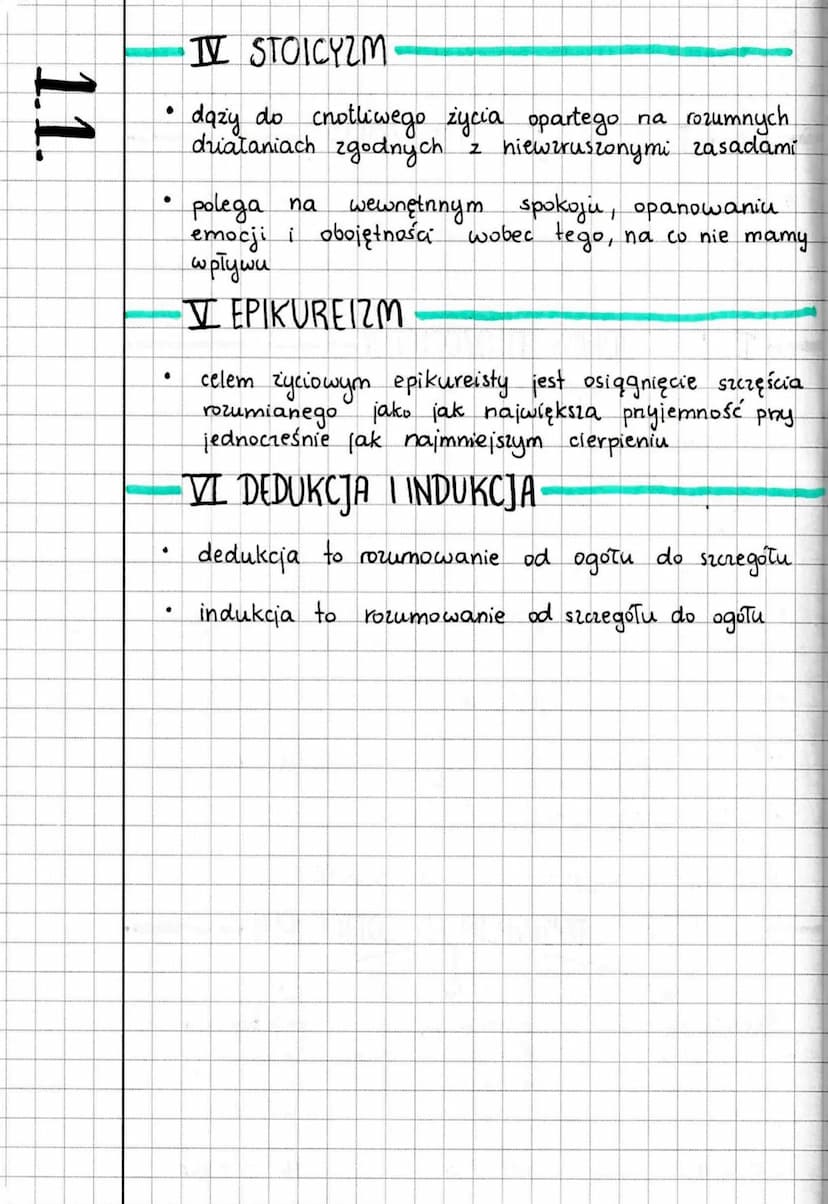 1.1.
IV STOICYZM
• dąży do cnotliwego życia opartego na rozumnych
działaniach zgodnych z niewzruszonymi zasadami
• polega na wewnętrznym spokoju, opanowaniu
emocji i obojętności wobec tego, na co nie mamy
wpływu
V EPIKUREIZM
• celem życiowym epikureisty jest osiągnięcie szczęścia
rozumianego jako jak największa przyjemność przy
jednocześnie jak najmniejszym cierpieniu
VI DEDUKCJA I INDUKCJA
• dedukcja to rozumowanie od ogółu do szczegółu
• indukcja to rozumowanie od szczegółu do ogółu